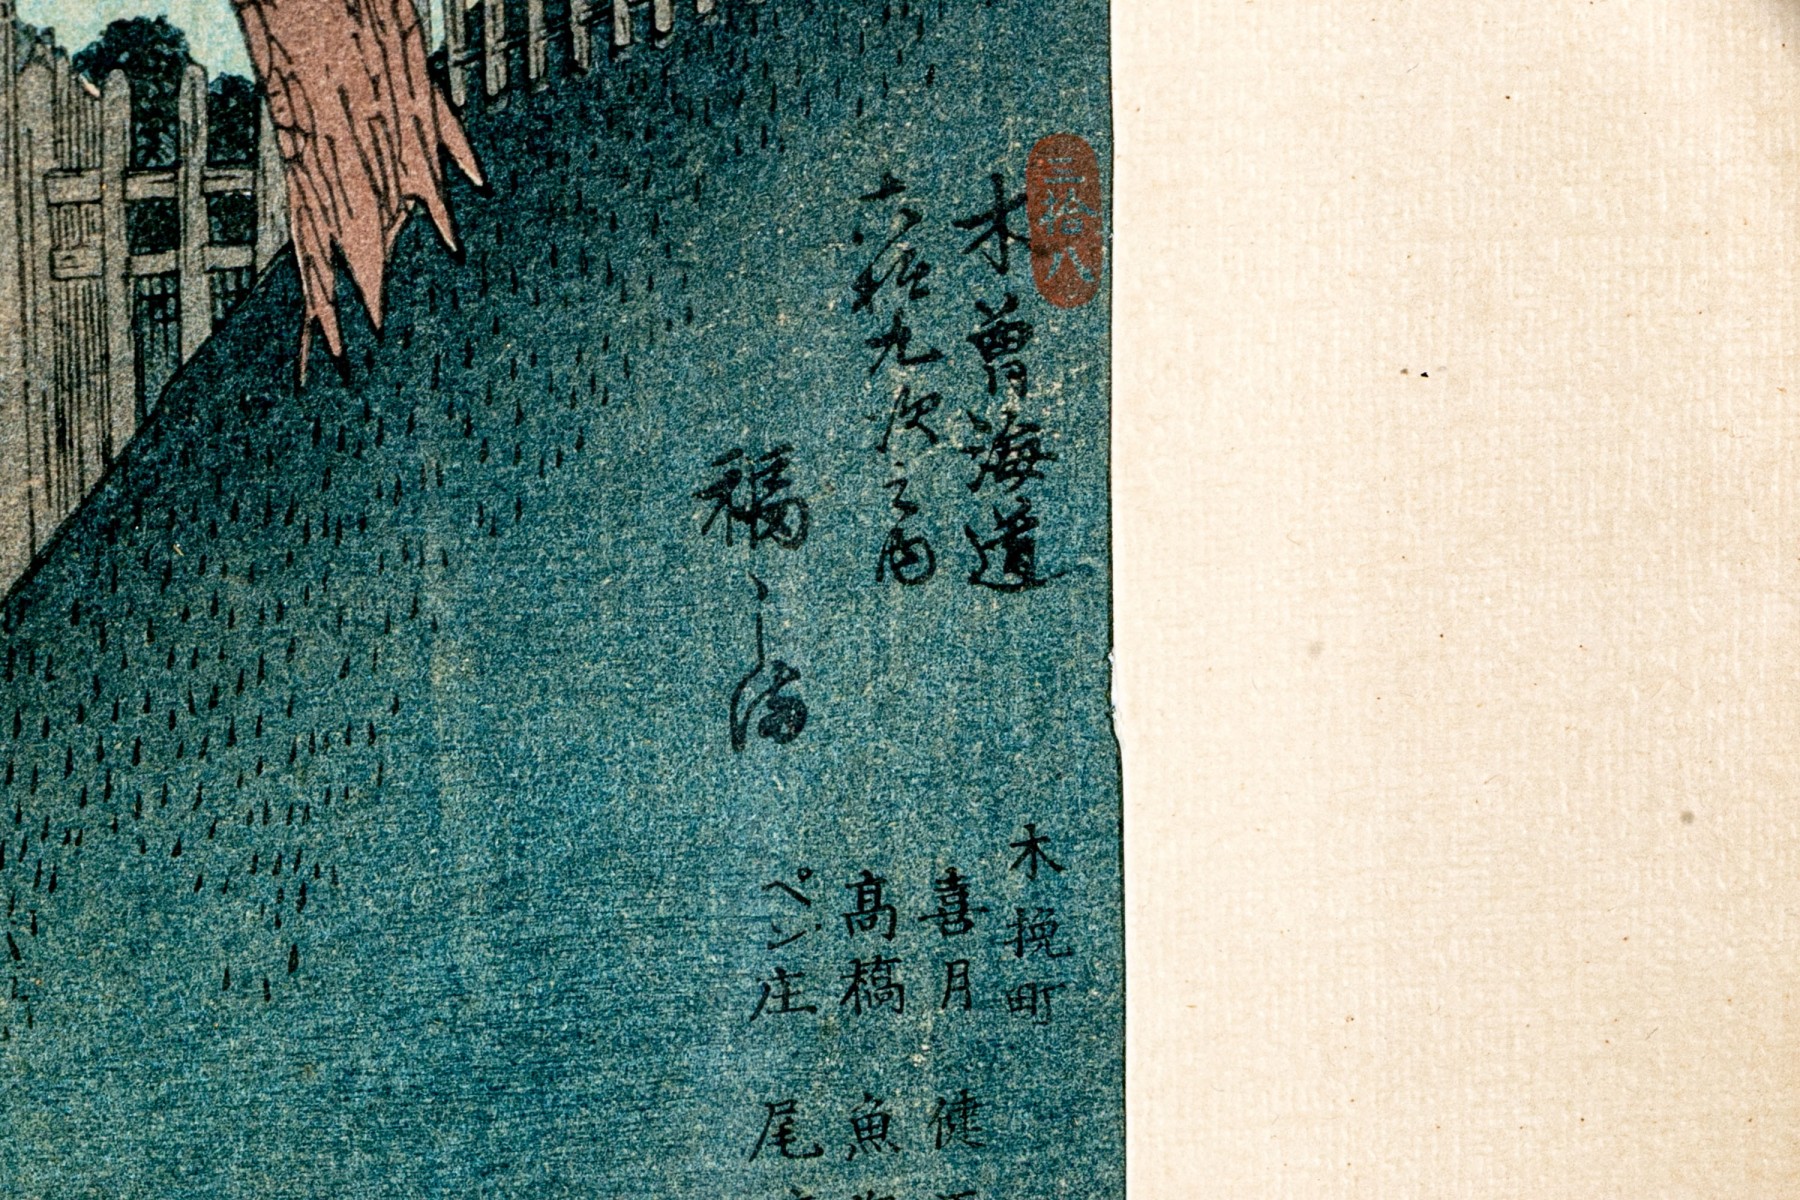 三拾八
木曾海道
六拾九次之内
福しま
木挽町
喜月 健
髙橋 魚
ペン庄 尾